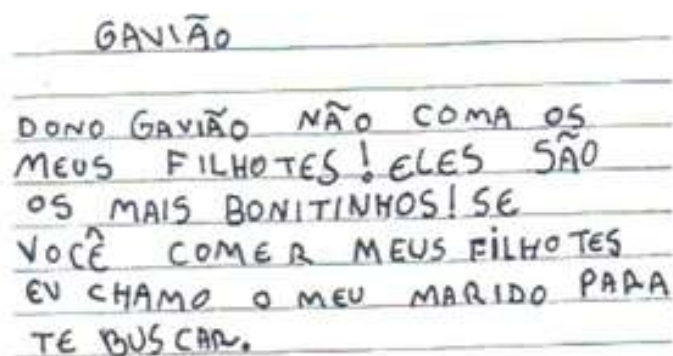 GAVIÃO
DONO GAVIÃO NÃO COMA OS
MEUS FILHOTES! ELES SÃO
OS MAIS BONITINHOS! SE
VOCÊ COMER MEUS FILHOTES
EU CHAMO O MEU MARIDO PARA
TE BUSCAR.